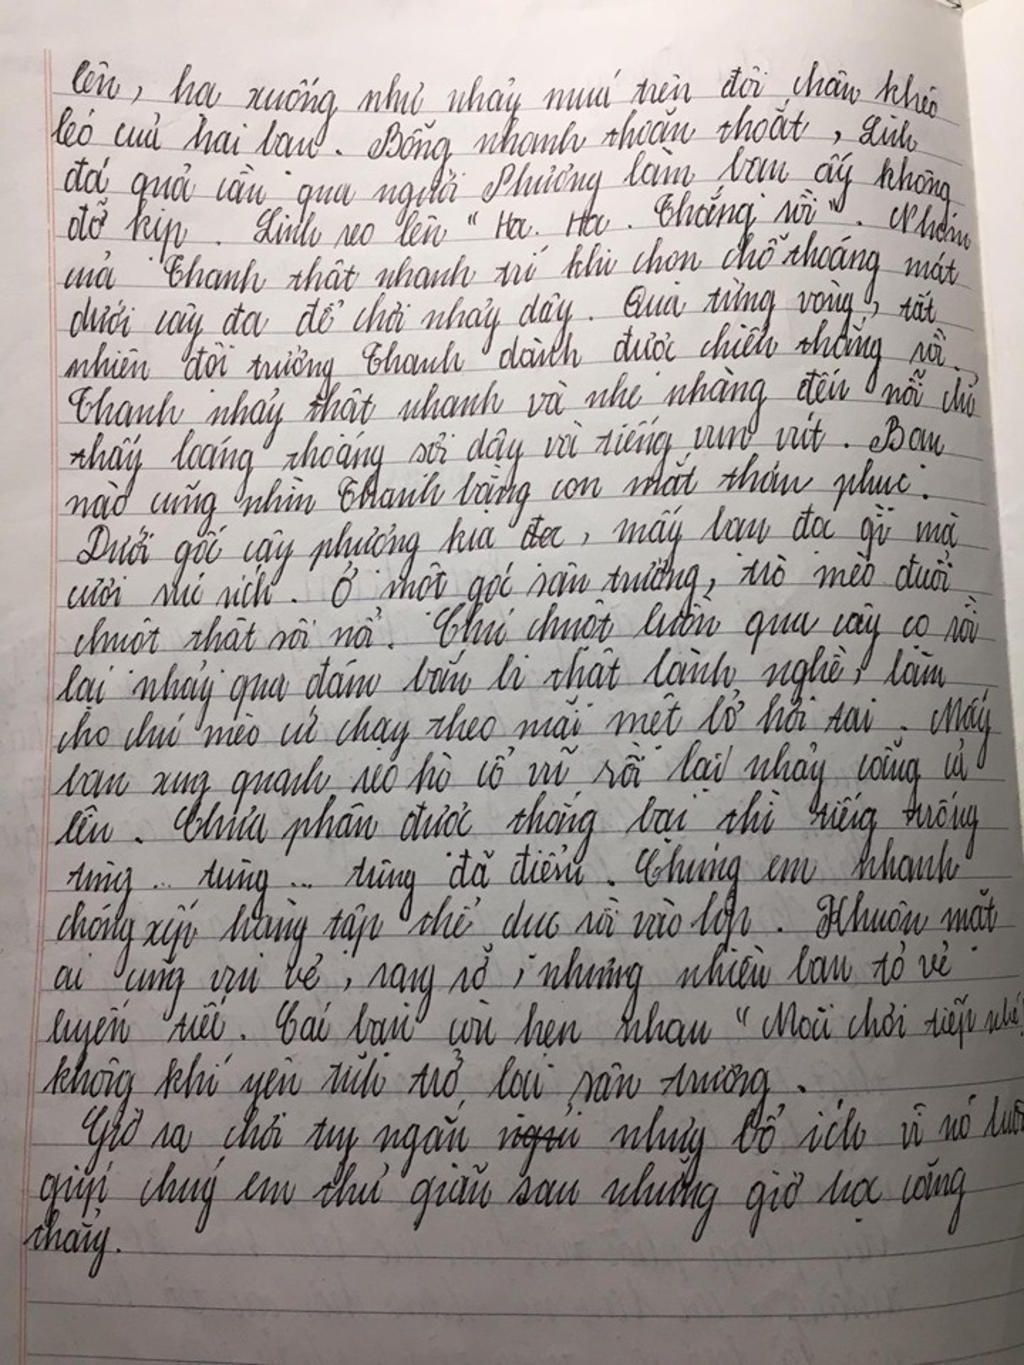 lên, hạ xuống như nhảy múa trên đôi chân khéo
léo của hai bạn. Bỗng nhanh thoăn thoắt, Linh
đá quả cầu qua người Phương làm bạn ấy không
đỡ kịp. Linh reo lên "Ha. Ha. Thắng rồi". Nhóm
của Thanh thật nhanh trí khi chọn chỗ thoáng mát
dưới cây đa để chơi nhảy dây. Qua từng vòng, tất
nhiên đội trưởng Thanh dành được chiến thắng rồi.
Thanh nhảy thật nhanh và nhẹ nhàng đến nỗi chỉ
thấy loáng thoáng sợi dây và tiếng vun vút. Bạn
nào cũng nhìn Thanh bằng con mắt thán phục.
Dưới gốc cây phượng kia, mấy bạn đa gì mà
cười rúc rích. Ở một góc sân trường, trò mèo đuổi
chuột thật sôi nổi. Chú chuột luồn qua cây cọ rồi
lại nhảy qua đám bắn bi thật lành nghề, làm
cho chú mèo cứ chạy theo mãi mệt bở hơi tai. Mấy
bạn xung quanh reo hò cổ vũ rồi lại nhảy cẫng cả
lên. Chưa phân được thắng bại thì tiếng trống
tùng... tùng... tùng đã điểm. Chúng em nhanh
chóng xếp hàng tập thể dục rồi vào lớp. Khuôn mặt
ai cũng vui vẻ, rạng rỡ, nhưng nhiều bạn tỏ vẻ
luyến tiếc. Các bạn còn hẹn nhau "Mai chơi tiếp nhé
không khí yên tĩnh trở lại sân trường.
Giờ ra chơi tuy ngắn nhưng bổ ích vì nó luôn
giúp chúng em thư giãn sau những giờ học căng
thẳng.